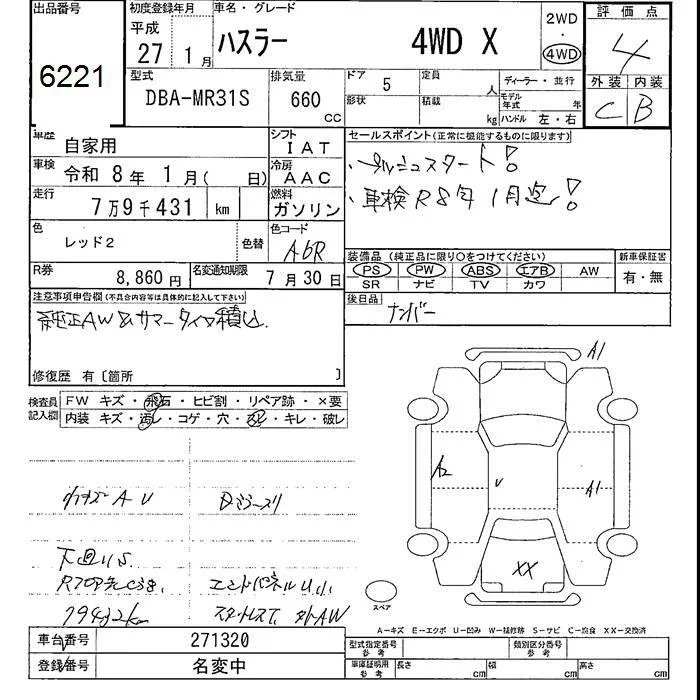 出品番号
6221
初度登録年月
平成
27 1月
車名・グレード
ハスラー 4WD X
2WD
・
4WD
評価点
4
外装 内装
C B
型式
DBA-MR31S
排気量
660
CC
ドア 5
形状
定員 人
積載 kg
ディーラー・並行
モデル年式 年
ハンドル 左・右
車歴 自家用
シフト IAT
車検 令和 8年 1月( 日)
冷房 AAC
走行 7万9千431 km
燃料 ガソリン
色 レッド2
色替
色コード A6R
R券 8,860円
名変通知期限 7月30日
セールスポイント(正常に機能するものに限ります)
・プッシュスタート!
・車検R8年1月迄!
装備品(純正品に限り○をつけてください)
PS PW ABS エアB AW
SR ナビ TV カワ
新車保証書
有・無
後日品
ナンバー
注意事項申告欄(不具合内容等は具体的に記入して下さい)
純正AW&サマータイヤ積込
修復歴 有〔箇所 〕
検査員記入欄
FW キズ・飛石・ヒビ割・リペア跡・×要
内装 キズ・汚レ・コゲ・穴・凹レ・キレ・破レ
A1
A2
U
A1
XX
A U
下廻りS
エンドパネルU.小
79432km
AW
スペア
A―キズ E―エクボ U―凹み W―補修跡 S―サビ C―腐食 XX―交換済
車台番号 271320
登録番号 名変中
型式指定番号 参考
類別区分番号 参考
車庫証明用 参考
長さ cm
幅 cm
高さ cm